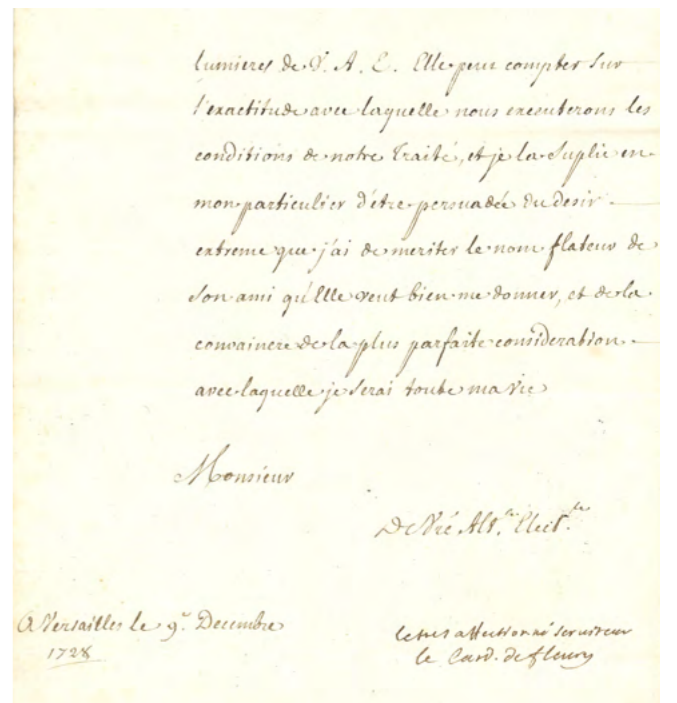 lumieres de V. A. E. Elle peut compter sur
l'exactitude avec laquelle nous executerons les
conditions de notre Traité, et je la Suplie en
mon particulier d'étre persuadée du desir
extreme que j'ai de meriter le nom flateur de
Son ami qu'Elle veut bien me donner, et de la
convaincre de la plus parfaite consideration
avec laquelle je serai toute ma vie
Monsieur
De Vré Alt.se Elect.le
A Versailles le 9.e Decembre
1728
le tres affectionné serviteur
le Card. de fleury